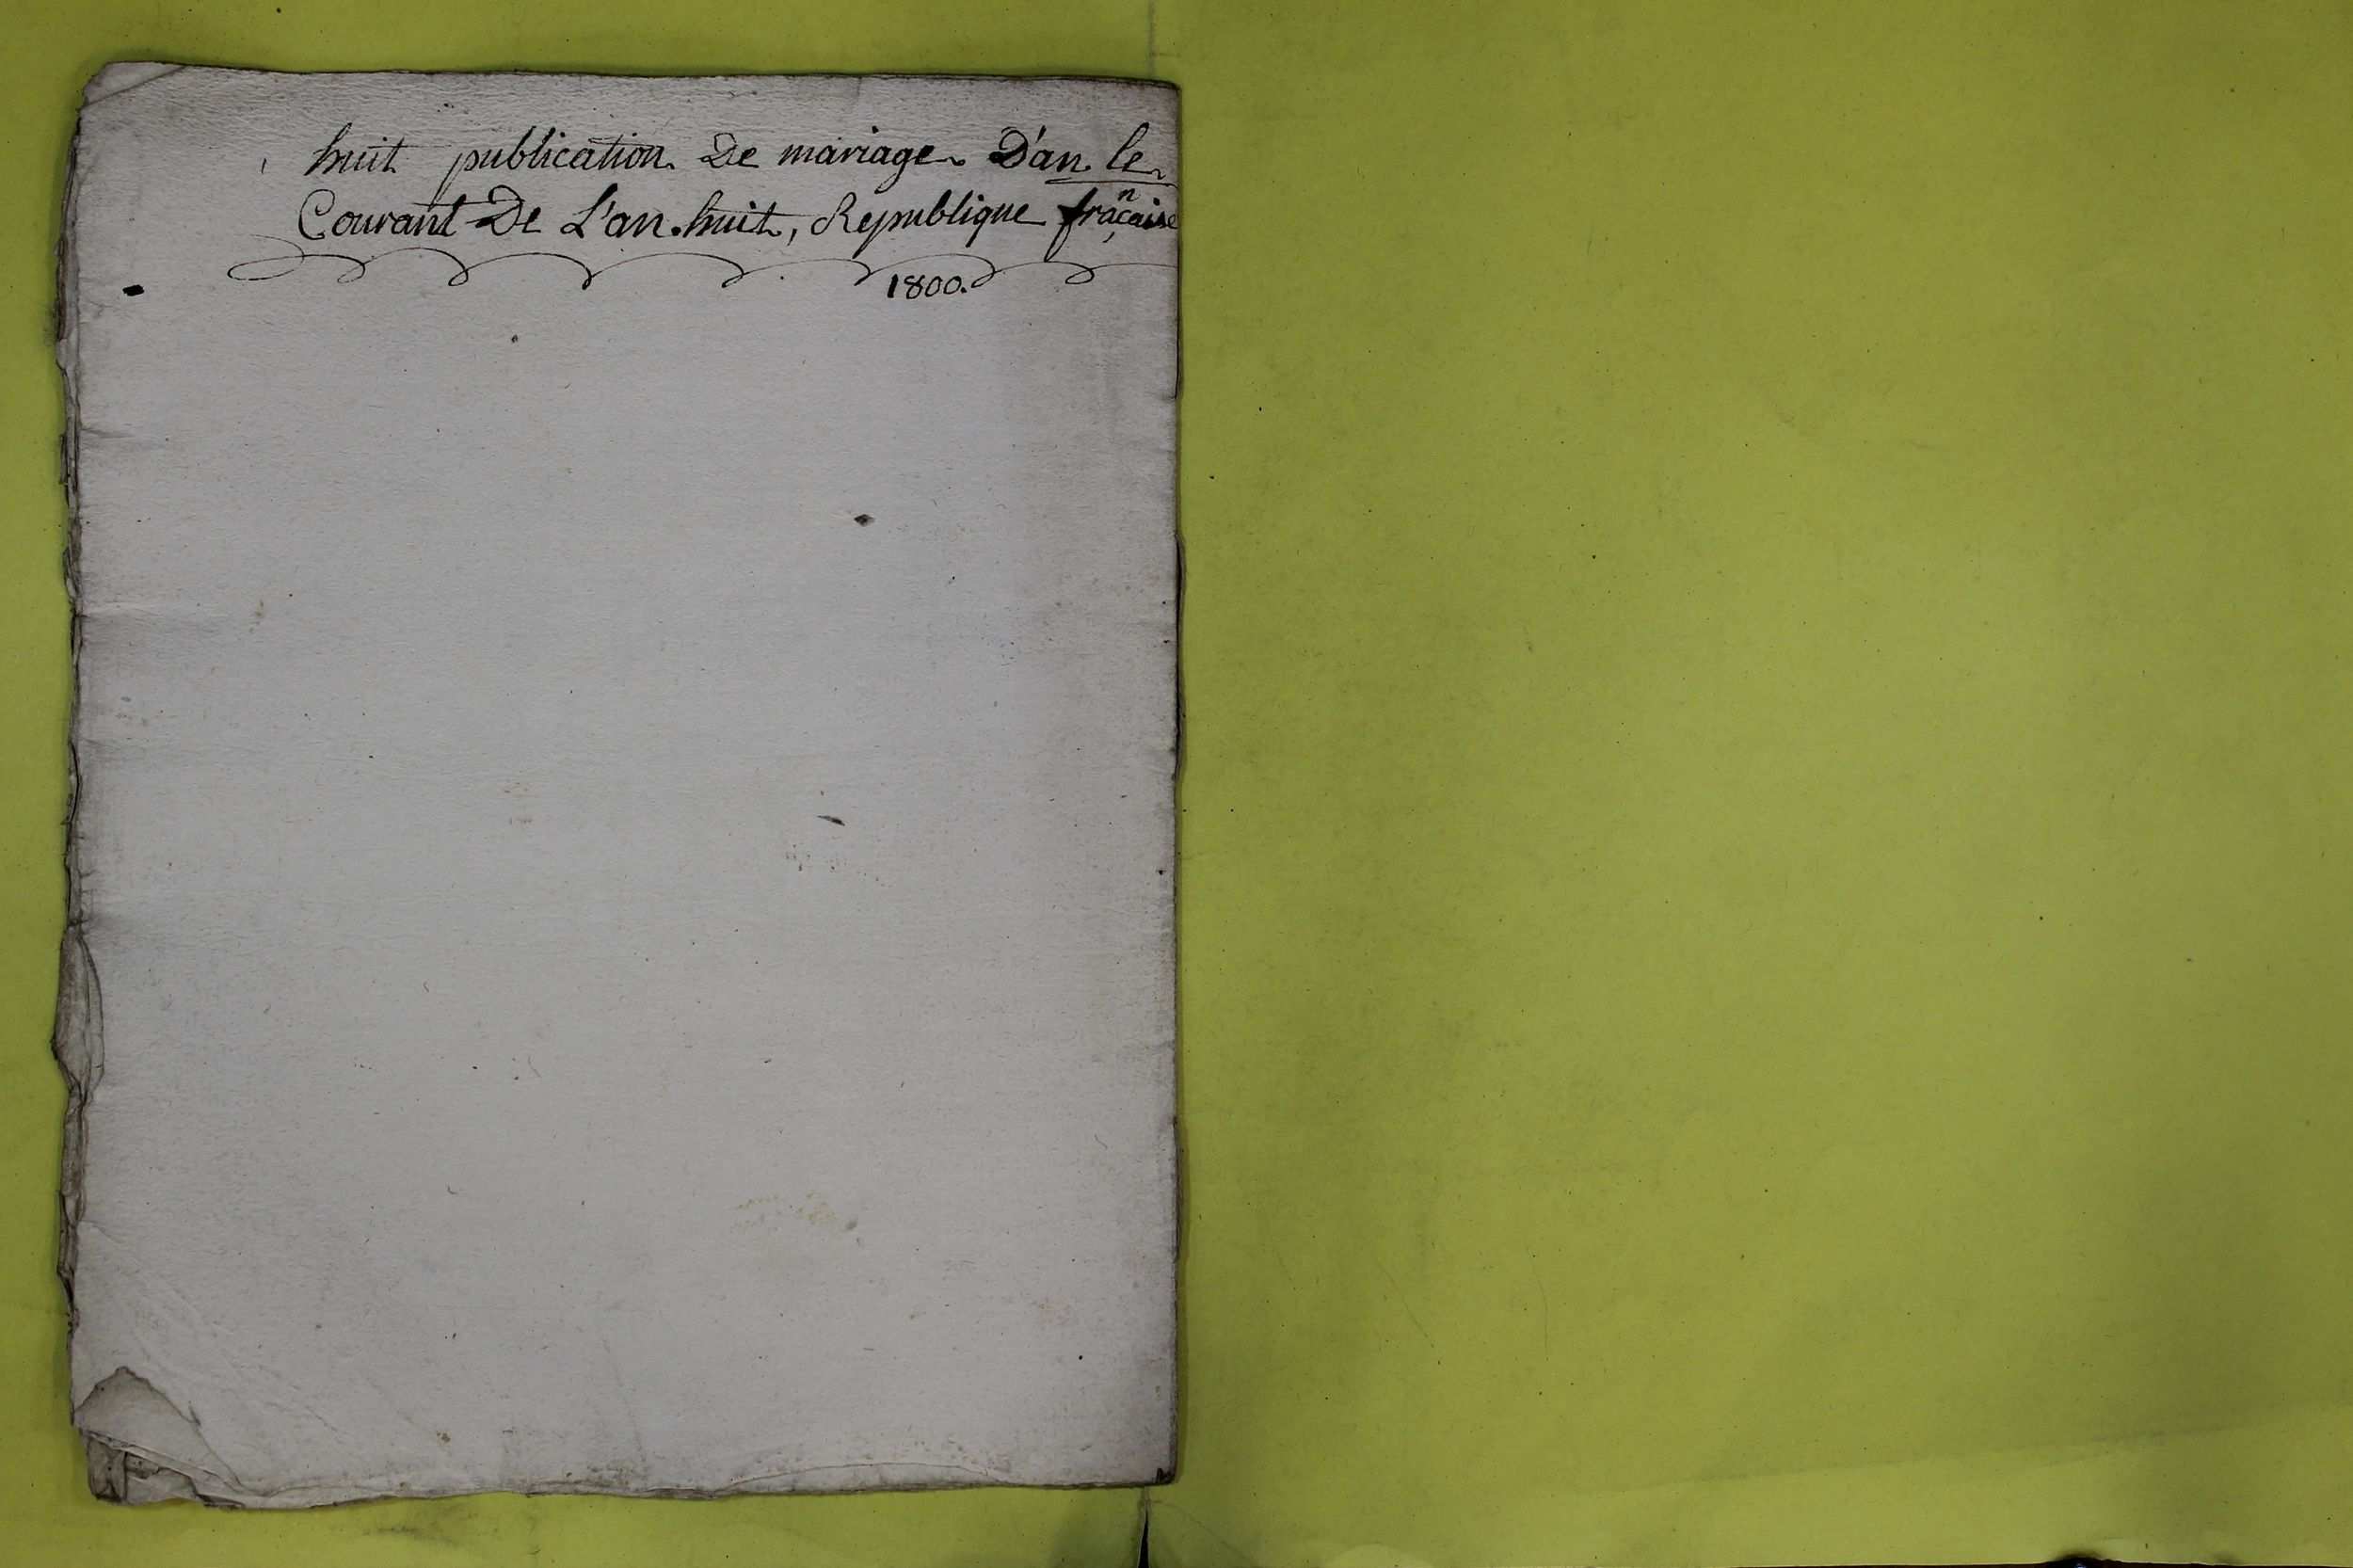 huit publication De mariage D'an le
Courant De L'an huit, Republique française
1800.